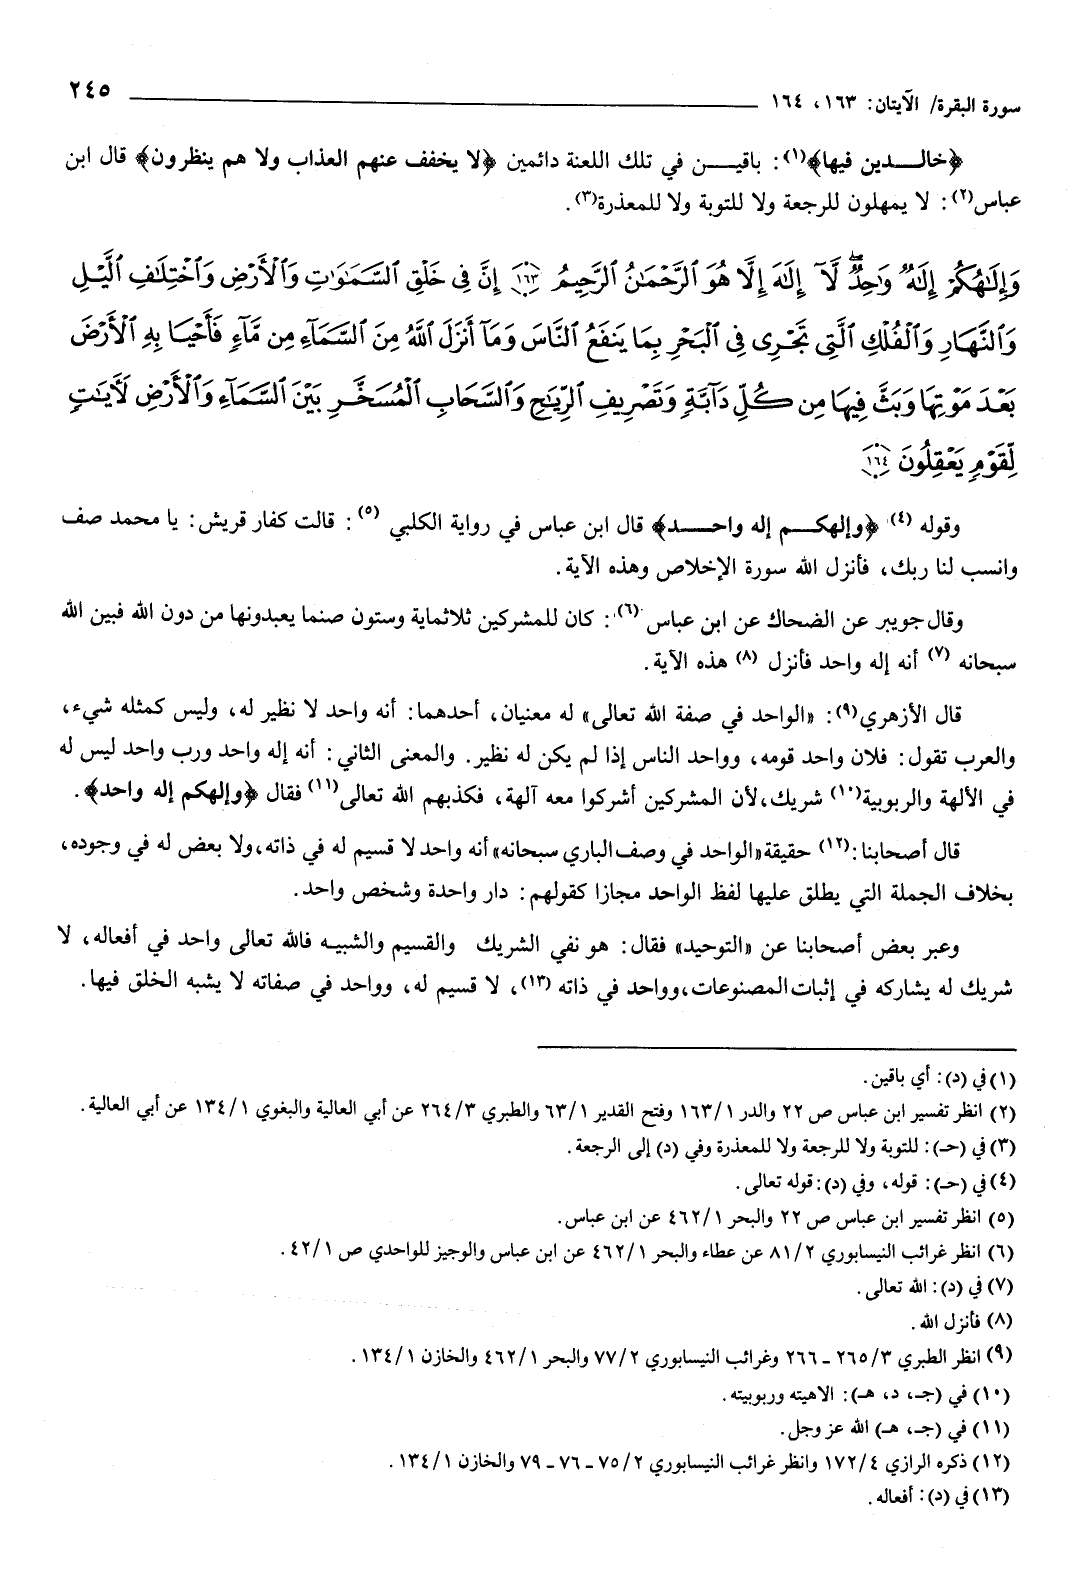 سورة البقرة/ الآيتان: ١٦٣، ١٦٤ ٢٤٥
﴿خالـــدين فيها﴾(١): باقيـــن في تلك اللعنة دائمين ﴿لا يخفف عنهم العذاب ولا هم ينظرون﴾ قال ابن
عباس(٢): لا يمهلون للرجعة ولا للتوبة ولا للمعذرة(٣).
وَإِلَٰهُكُمْ إِلَٰهٌ وَٰحِدٌ ۖ لَّآ إِلَٰهَ إِلَّا هُوَ الرَّحْمَٰنُ الرَّحِيمُ ﴿١٦٣﴾ إِنَّ فِى خَلْقِ السَّمَٰوَٰتِ وَالْأَرْضِ وَاخْتِلَٰفِ الَّيْلِ
وَالنَّهَارِ وَالْفُلْكِ الَّتِى تَجْرِى فِى الْبَحْرِ بِمَا يَنفَعُ النَّاسَ وَمَآ أَنزَلَ اللَّهُ مِنَ السَّمَآءِ مِن مَّآءٍ فَأَحْيَا بِهِ الْأَرْضَ
بَعْدَ مَوْتِهَا وَبَثَّ فِيهَا مِن كُلِّ دَآبَّةٍ وَتَصْرِيفِ الرِّيَٰحِ وَالسَّحَابِ الْمُسَخَّرِ بَيْنَ السَّمَآءِ وَالْأَرْضِ لَءَايَٰتٍ
لِّقَوْمٍ يَعْقِلُونَ ﴿١٦٤﴾
وقوله (٤) ﴿وإلهكـــم إله واحـــد﴾ قال ابن عباس في رواية الكلبي (٥): قالت كفار قريش: يا محمد صف
وانسب لنا ربك، فأنزل الله سورة الإخلاص وهذه الآية.
وقال جويبر عن الضحاك عن ابن عباس (٦): كان للمشركين ثلاثماية وستون صنما يعبدونها من دون الله فبين الله
سبحانه (٧) أنه إله واحد فأنزل (٨) هذه الآية.
قال الأزهري(٩): «الواحد في صفة الله تعالى» له معنيان، أحدهما: أنه واحد لا نظير له، وليس كمثله شيء،
والعرب تقول: فلان واحد قومه، وواحد الناس إذا لم يكن له نظير. والمعنى الثاني: أنه إله واحد ورب واحد ليس له
في الألهة والربوبية(١٠) شريك، لأن المشركين أشركوا معه آلهة، فكذبهم الله تعالى(١١) فقال ﴿وإلهكم إله واحد﴾.
قال أصحابنا:(١٢) حقيقة «الواحد في وصف الباري سبحانه» أنه واحد لا قسيم له في ذاته، ولا بعض له في وجوده،
بخلاف الجملة التي يطلق عليها لفظ الواحد مجازا كقولهم: دار واحدة وشخص واحد.
وعبر بعض أصحابنا عن «التوحيد» فقال: هو نفي الشريك والقسيم والشبيه فالله تعالى واحد في أفعاله، لا
شريك له يشاركه في إثبات المصنوعات، وواحد في ذاته (١٣)، لا قسيم له، وواحد في صفاته لا يشبه الخلق فيها.
(١) في (د): أي باقين.
(٢) انظر تفسير ابن عباس ص ٢٢ والدر ١/ ١٦٣ وفتح القدير ١/ ٦٣ والطبري ٣/ ٢٦٤ عن أبي العالية والبغوي ١/ ١٣٤ عن أبي العالية.
(٣) في (حـ): للتوبة ولا للرجعة ولا للمعذرة وفي (د) إلى الرجعة.
(٤) في (حـ): قوله، وفي (د): قوله تعالى.
(٥) انظر تفسير ابن عباس ص ٢٢ والبحر ١/ ٤٦٢ عن ابن عباس.
(٦) انظر غرائب النيسابوري ٢/ ٨١ عن عطاء والبحر ١/ ٤٦٢ عن ابن عباس والوجيز للواحدي ص ١/ ٤٢.
(٧) في (د): الله تعالى.
(٨) فأنزل الله.
(٩) انظر الطبري ٣/ ٢٦٥ ـ ٢٦٦ وغرائب النيسابوري ٢/ ٧٧ والبحر ١/ ٤٦٢ والخازن ١/ ١٣٤.
(١٠) في (جـ، د، هـ): الاهيته وربوبيته.
(١١) في (جـ، هـ) الله عز وجل.
(١٢) ذكره الرازي ٤/ ١٧٢ وانظر غرائب النيسابوري ٢/ ٧٥ ـ ٧٦ ـ ٧٩ والخازن ١/ ١٣٤.
(١٣) في (د): أفعاله.